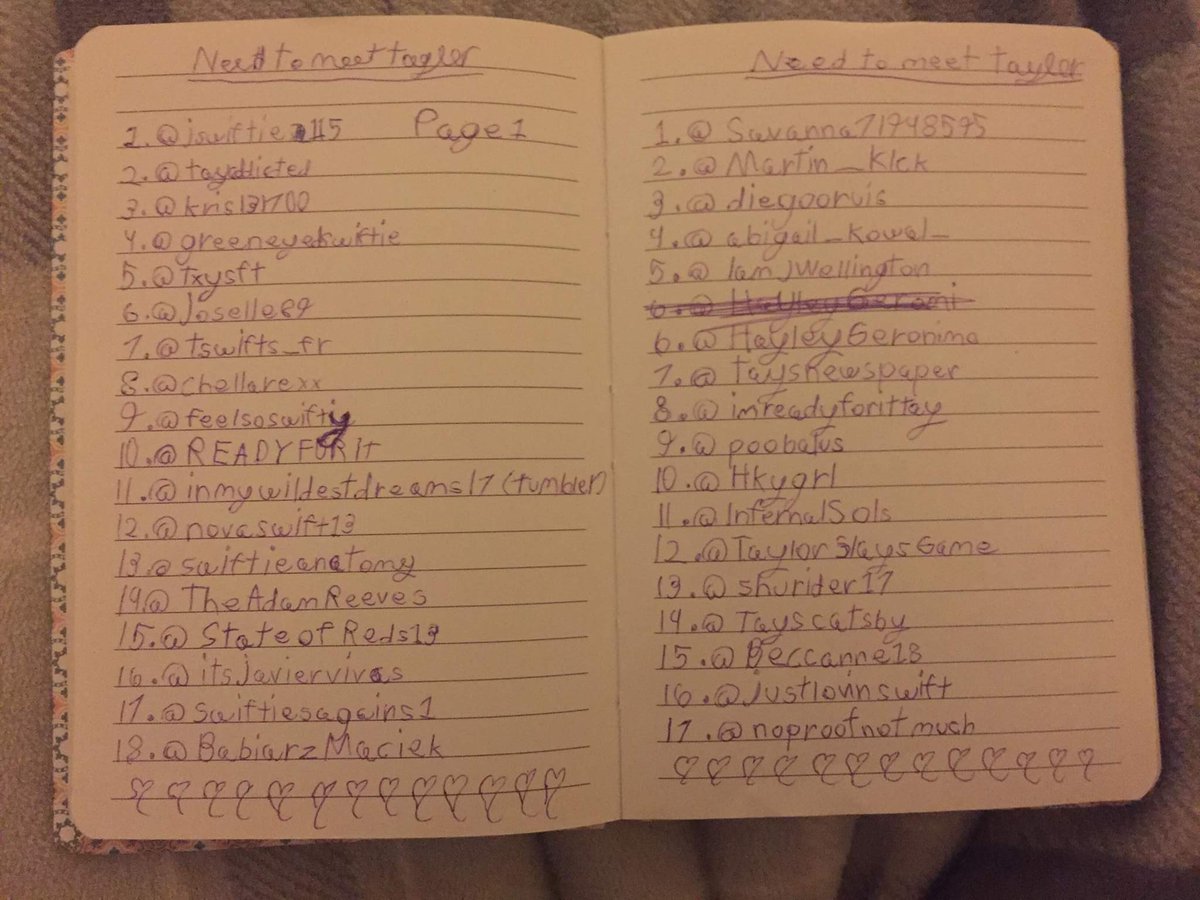 Need to meet taylor
Page 1
2. @tayddicted
3. @kris131700
4. @greeneyekswiftie
5. @txysft
6. @Joselle89
7. @tswifts_fr
8. @chellarexx
9. @feelsoswifty
10. @READYFORIT
11. @inmywildestdreams17 (tumbler)
12. @novaswift13
13 @swiftieanatomy
14@ TheAdamReeves
15. @ StateofReds13
16. @itsJaviervivas
17. @swiftiesagains1
18. @BabiarzMaciek
Need to meet taylor
1. @ Savanna71948595
2. @Martin_Klck
3. @ diegoorvis
4. @ abigail_kowal_
5. @ IamJWellington
6. @HayleyGeronimo
7. @ TaysNewspaper
8. @ imreadyforittay
9. @ poobatus
10. @Hkygrl
11. @InfernalSols
12. @TaylorSlaysGame
13. @ shurider17
14. @ Tayscatsby
15. @Beccanne13
16. @Justlovinswift
17. @noproofnotmuch